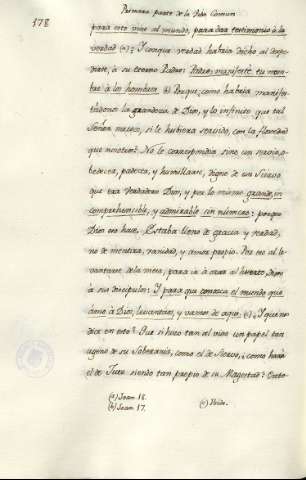 178
Primera parte de la Vida Comun
para esto vino al mundo, para dar testimonio a la
verdad (a)? Y con que verdad habria dicho al
, a su eterno Padre: Padre, manifesté tu nom-
bre à los hombres (b) Porque, como habria manifes-
tadonos la grandeza de Dios, y lo infinito que tal
Señor merece, si le hubiera servido, con la
que nosotros? No le correspondia sino un servicio, o-
bediencia, padecer, y humillarse, digno de un Siervo
que era verdadero Dios, y por lo mismo grande, in-
comprehensible, y admirable sin numero: porque
Dios era Estaba lleno de gracia y verdad,
no de mentira, vanidad, y amor propio. Por eso al le-
vantarse de la mesa, para ir à orar al huerto dijo
à sus discipulos: Y para que conozca el mundo que
amo à Dios, levantaos, y vamos de aqui (c). Y que no
dice en esto? Que si hizo tan al vivo un papel tan
ageno de su Soberania, como el de Siervo, como haria
el de Juez siendo tan propio de su Magestad?
(a) Joan 18.
(b) Joan 17.
(c) Ibide.